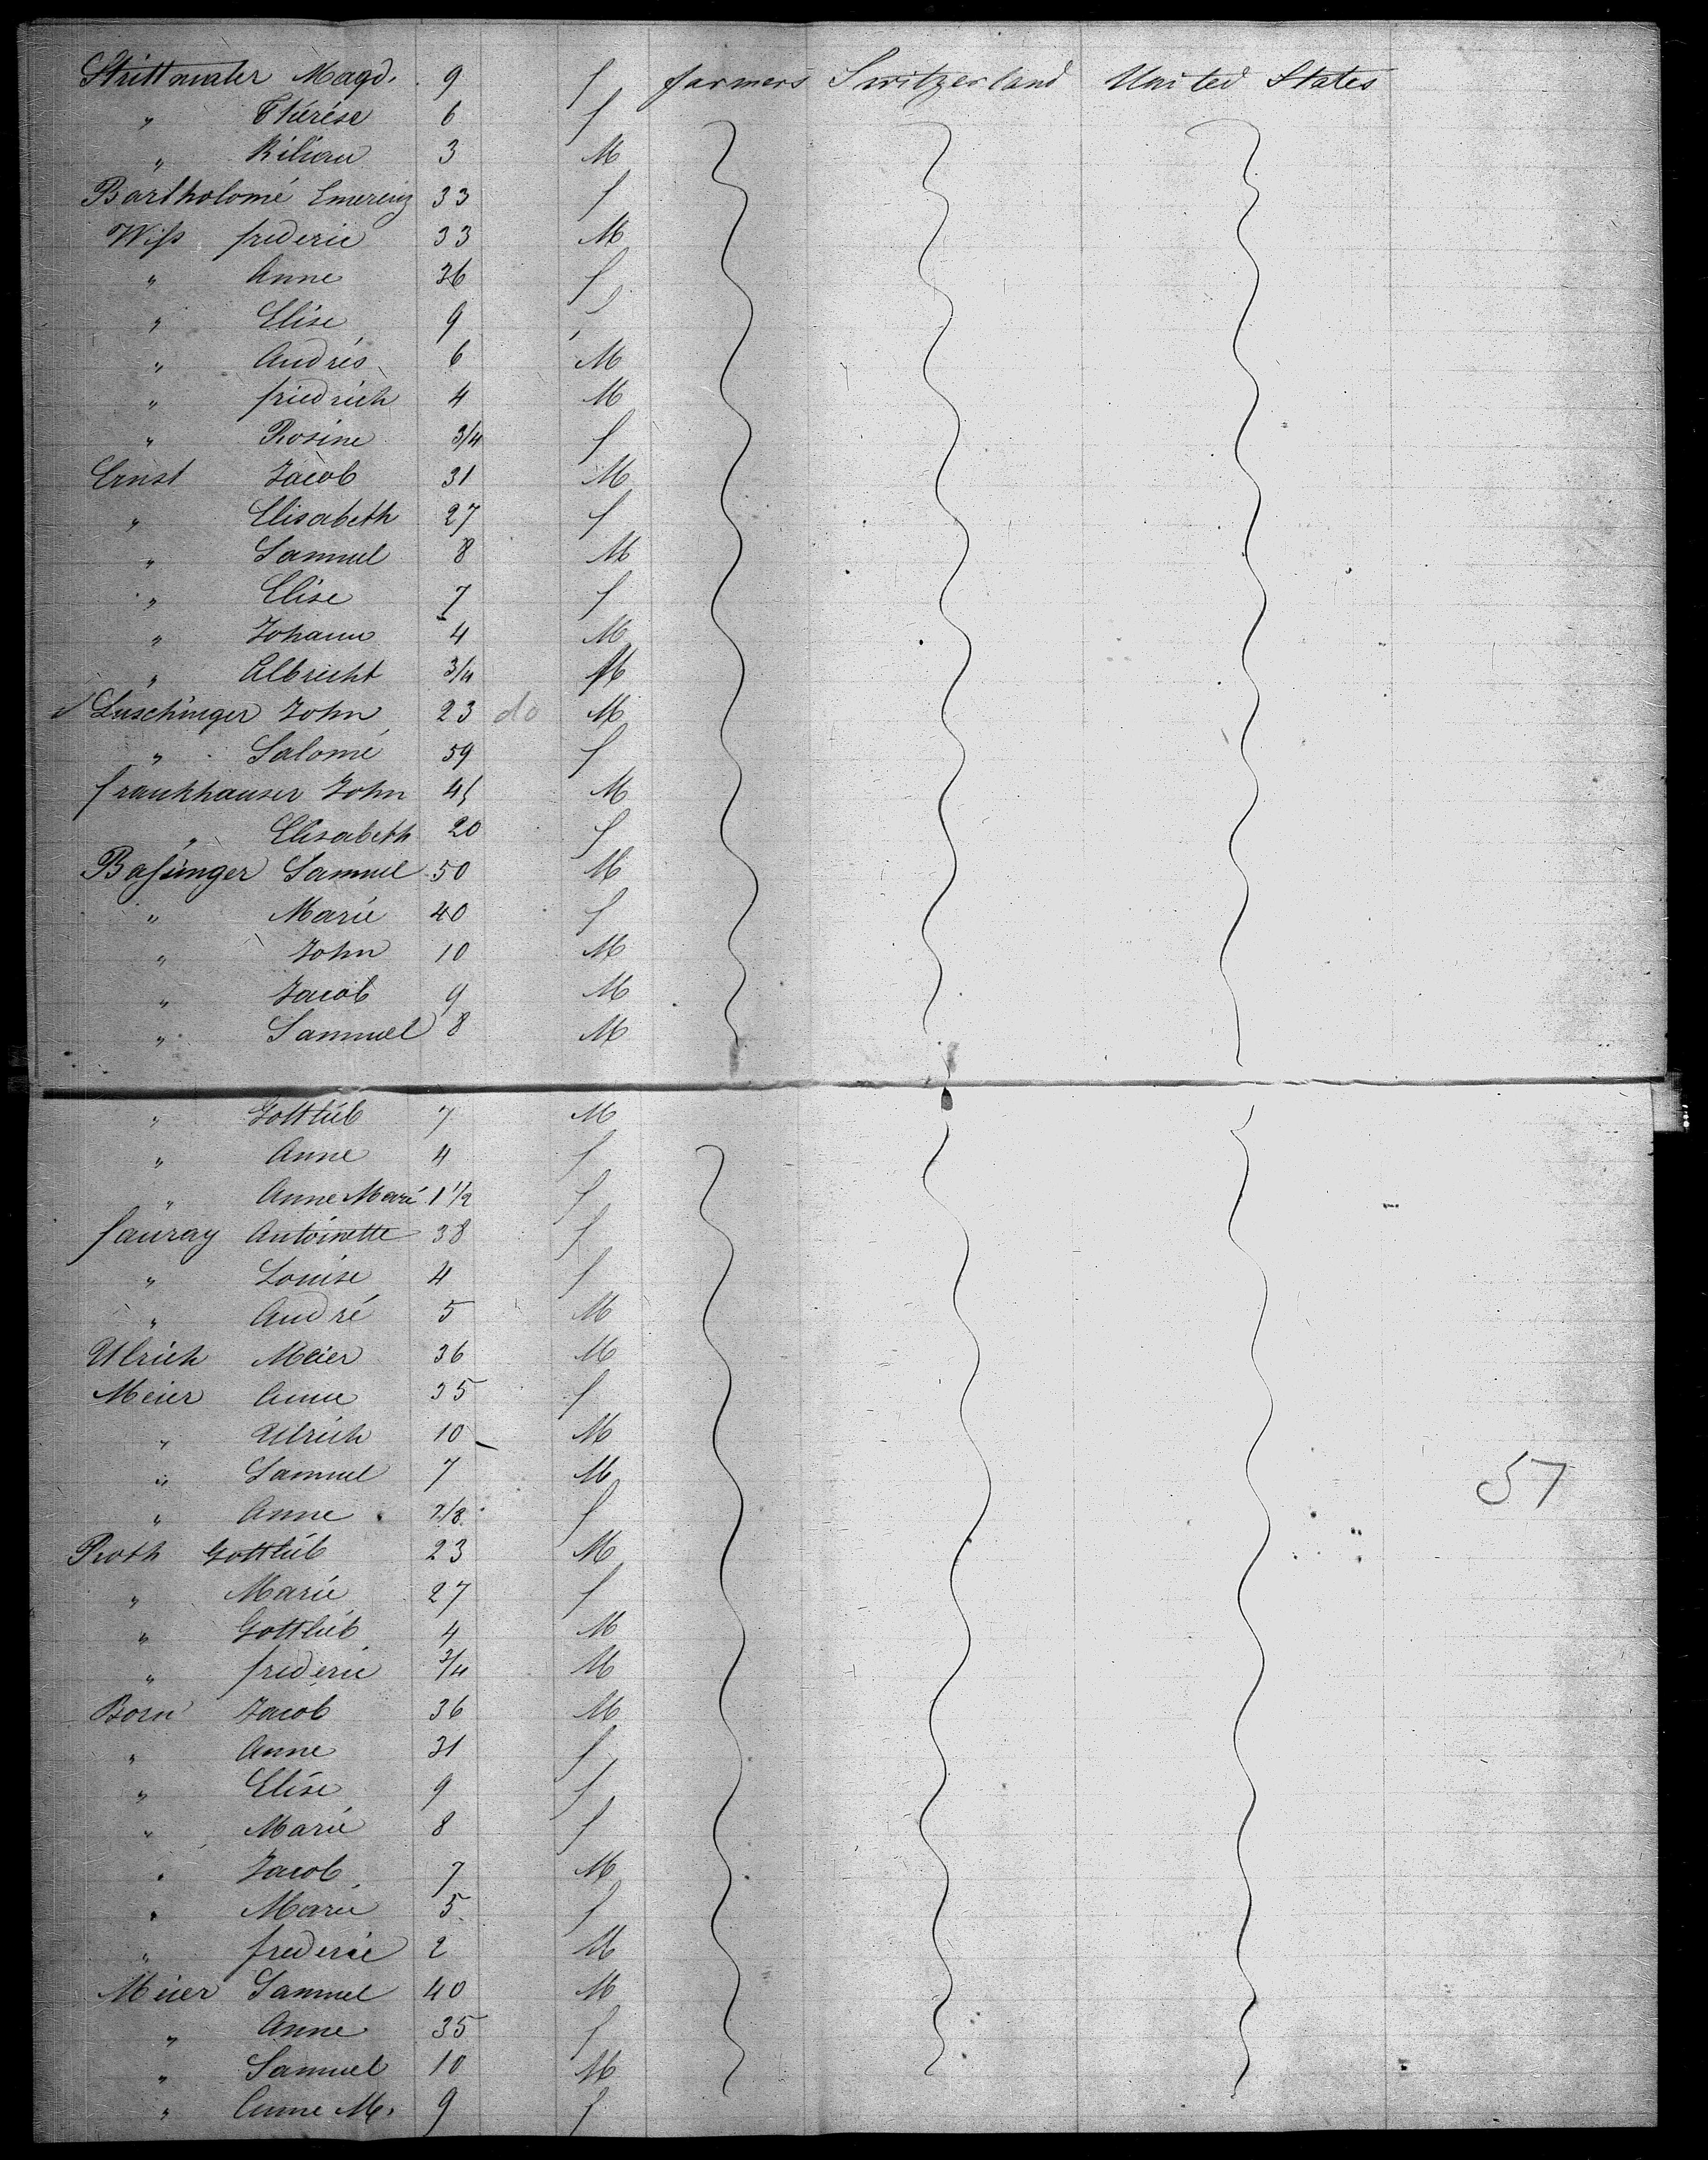 Strittmater Magd. 9 f farmers Switzerland United States
" Thérése 6 f
" Kilian 3 M
Bartholomé Emerenz 33 f
Wiss frederic 33 M
" Anne 36 f
" Elise 9 f
" Andrés 6 M
" friedrich 4 M
" Rosine 3/4 f
Ernst Jacob 31 M
" Elisabeth 27 f
" Samuel 8 M
" Elise 7 f
" Johann 4 M
" Albrecht 3/4 M
Luschinger John 23 do M
" Salomé 59 f
frankhauser John 45 M
" Elisabeth 20 f
Bassinger Samuel 50 M
" Marie 40 f
" John 10 M
" Jacob 9 M
" Samuel 8 M
" Gottlieb 7 M
" Anne 4 f
" Anne Marie 1 1/2 f
fauray Antoinette 38 f
" Louise 4 f
" André 5 M
Ulrich Meier 36 M
Meier Anne 35 f
" Ulrich 10 M
" Samuel 7 M
" Anne 7/8 f
57
Roth Gottlieb 23 M
" Marie 27 f
" Gottlieb 4 M
" frederic 3/4 M
Born Jacob 36 M
" Anne 31 f
" Elise 9 f
" Marie 8 f
" Jacob 7 M
" Marie 5 f
" frederic 2 M
Meier Samuel 40 M
" Anne 35 f
" Samuel 10 M
" Anne M. 9 f